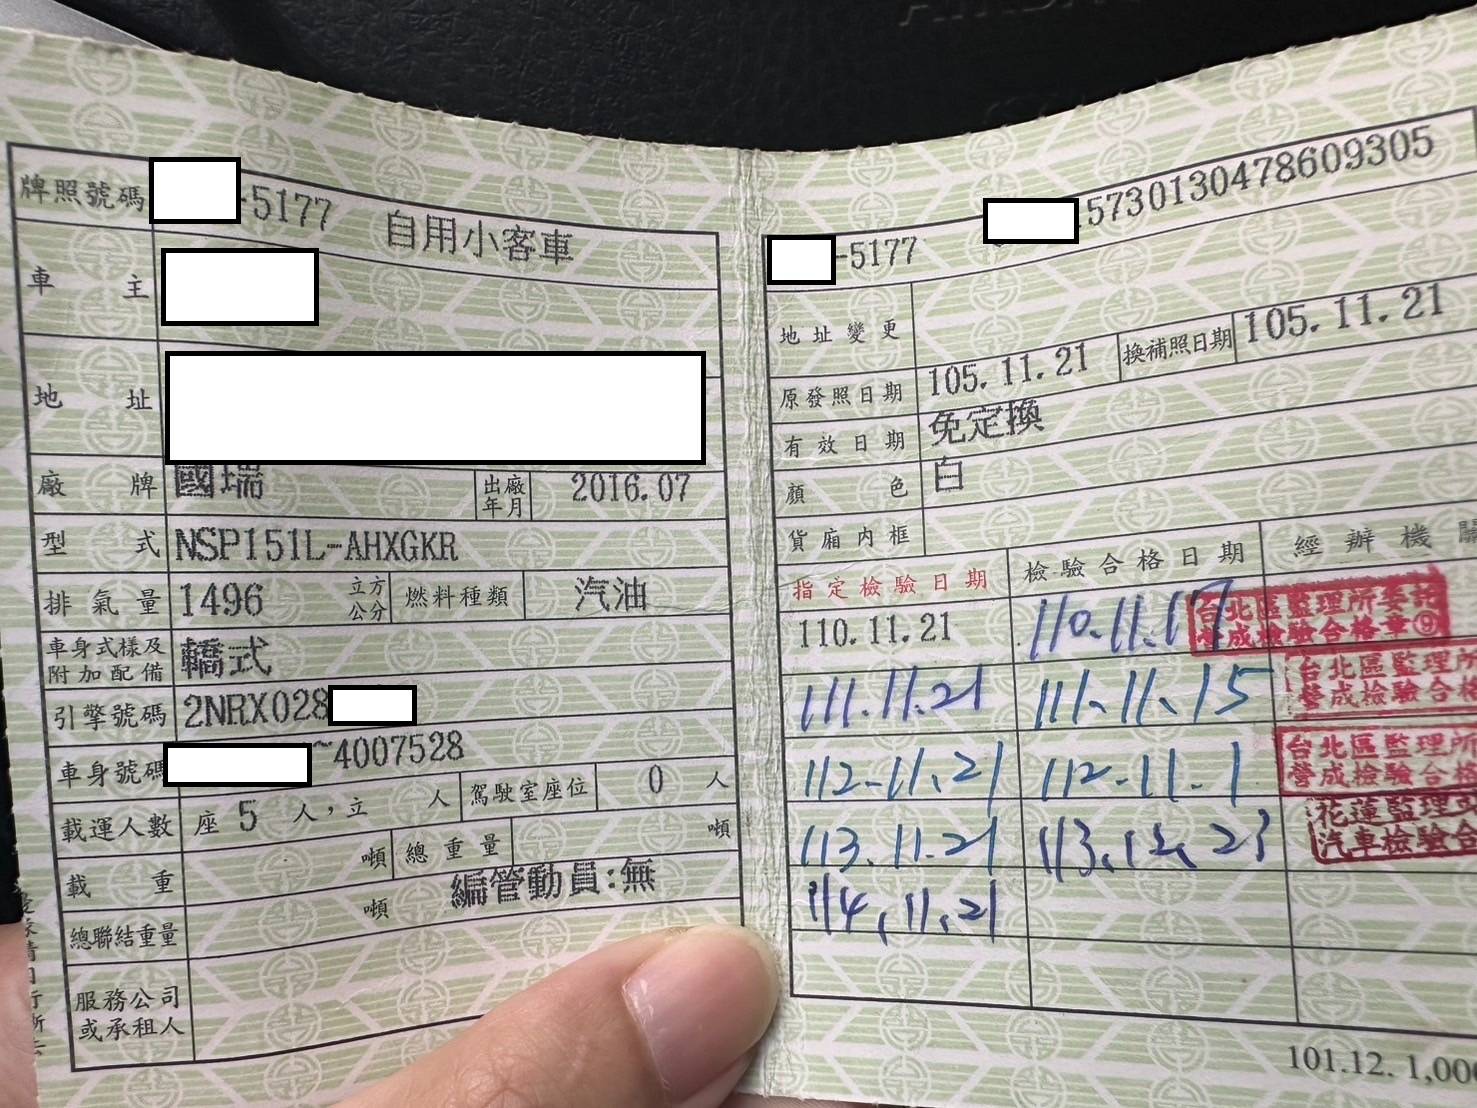 牌照號碼 -5177 自用小客車
車主
地址
廠牌 國瑞 出廠年月 2016.07
型式 NSP151L-AHXGKR
排氣量 1496 立方公分 燃料種類 汽油
車身式樣及附加配備 轎式
引擎號碼 2NRX028
車身號碼 ~4007528
載運人數 座 5 人,立 人 駕駛室座位 0 人
載重 噸 總重量 噸
總聯結重量 噸 編管動員:無
服務公司或承租人
-5177 5730130478609305
地址變更
原發照日期 105.11.21 換補照日期 105.11.21
有效日期 免定換
顏色 白
貨廂內框
指定檢驗日期 檢驗合格日期 經辦機關
110.11.21 110.11.17 台北區監理所委託
營成檢驗合格章⑨
111.11.21 111.11.15 台北區監理所
營成檢驗合格
112-11.21 112-11.1 台北區監理所
營成檢驗合格
113.11.21 113.12.23 花蓮監理
汽車檢驗合
114.11.21
101.12. 1,000